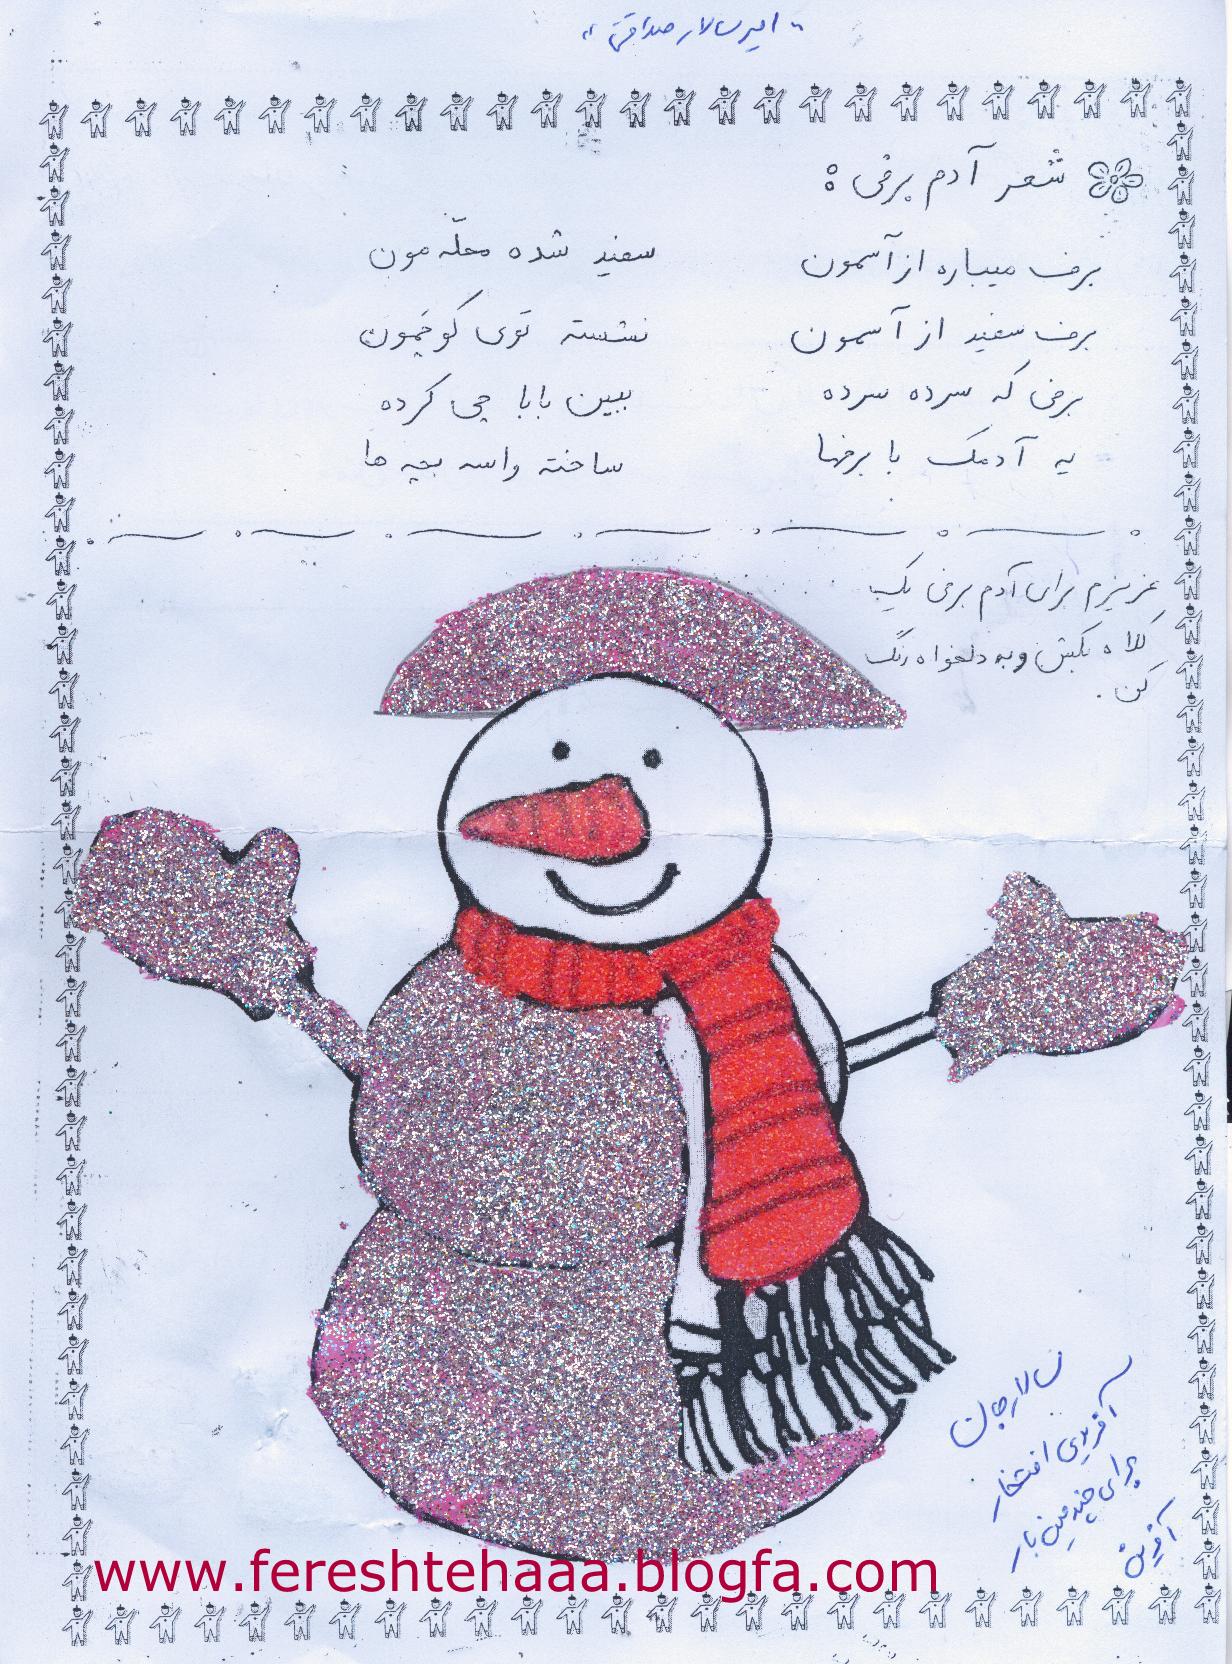 " امیر سالار صداقتی "
شعر آدم برفی :
برف میباره از آسمون سفید شده محلّه مون
برف سفید از آسمون نشسته توی کوچمون
برفی که سرده سرده ببین بابا چی کرده
یه آدمک با برفها ساخته واسه بچه ها
عزیزم برای آدم برفی یک
کلاه بکش و به دلخواه رنگ
کن .
سالار جان
آفریدی افتخار
برای چندمین بار
آفرین
www.fereshtehaaa.blogfa.com